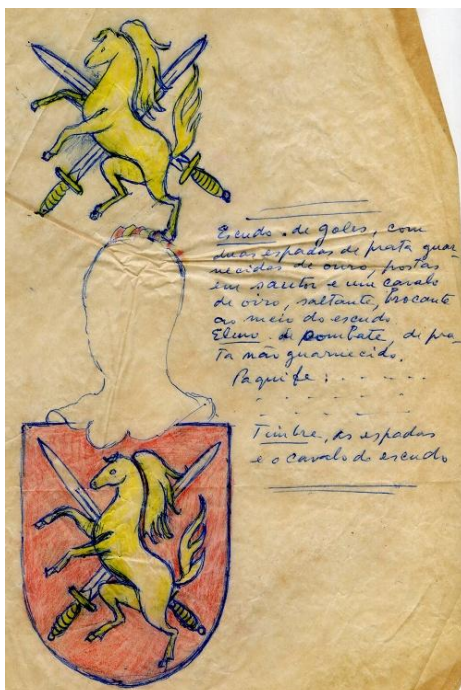 Escudo - de goles, com
duas espadas de prata guar-
necidas de ouro, postas
em santor e um cavalo
de oiro, saltante, brocante
ao meio do escudo
Elmo - de combate, de pra-
ta não guarnecido.
Paquife: . - - - -
. - - - - -
Timbre, as espadas
e o cavalo do escudo